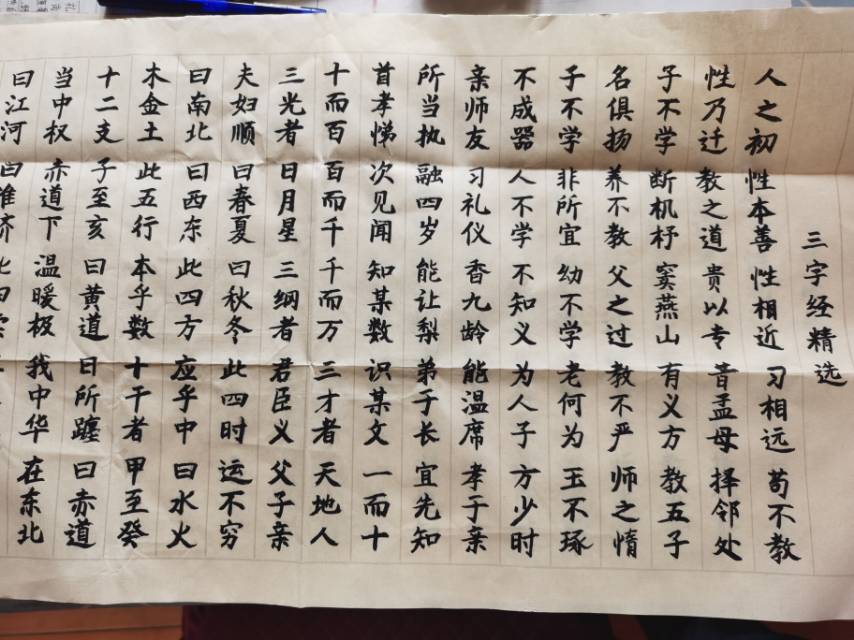 三字经精选
人之初 性本善 性相近 习相远 苟不教
性乃迁 教之道 贵以专 昔孟母 择邻处
子不学 断机杼 窦燕山 有义方 教五子
名俱扬 养不教 父之过 教不严 师之惰
子不学 非所宜 幼不学 老何为 玉不琢
不成器 人不学 不知义 为人子 方少时
亲师友 习礼仪 香九龄 能温席 孝于亲
所当执 融四岁 能让梨 弟于长 宜先知
首孝悌 次见闻 知某数 识某文 一而十
十而百 百而千 千而万 三才者 天地人
三光者 日月星 三纲者 君臣义 父子亲
夫妇顺 曰春夏 曰秋冬 此四时 运不穷
曰南北 曰西东 此四方 应乎中 曰水火
木金土 此五行 本乎数 十干者 甲至癸
十二支 子至亥 曰黄道 日所躔 曰赤道
当中权 赤道下 温暖极 我中华 在东北
曰江河 曰淮济